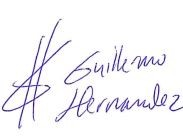 Guillermo
Hernandez